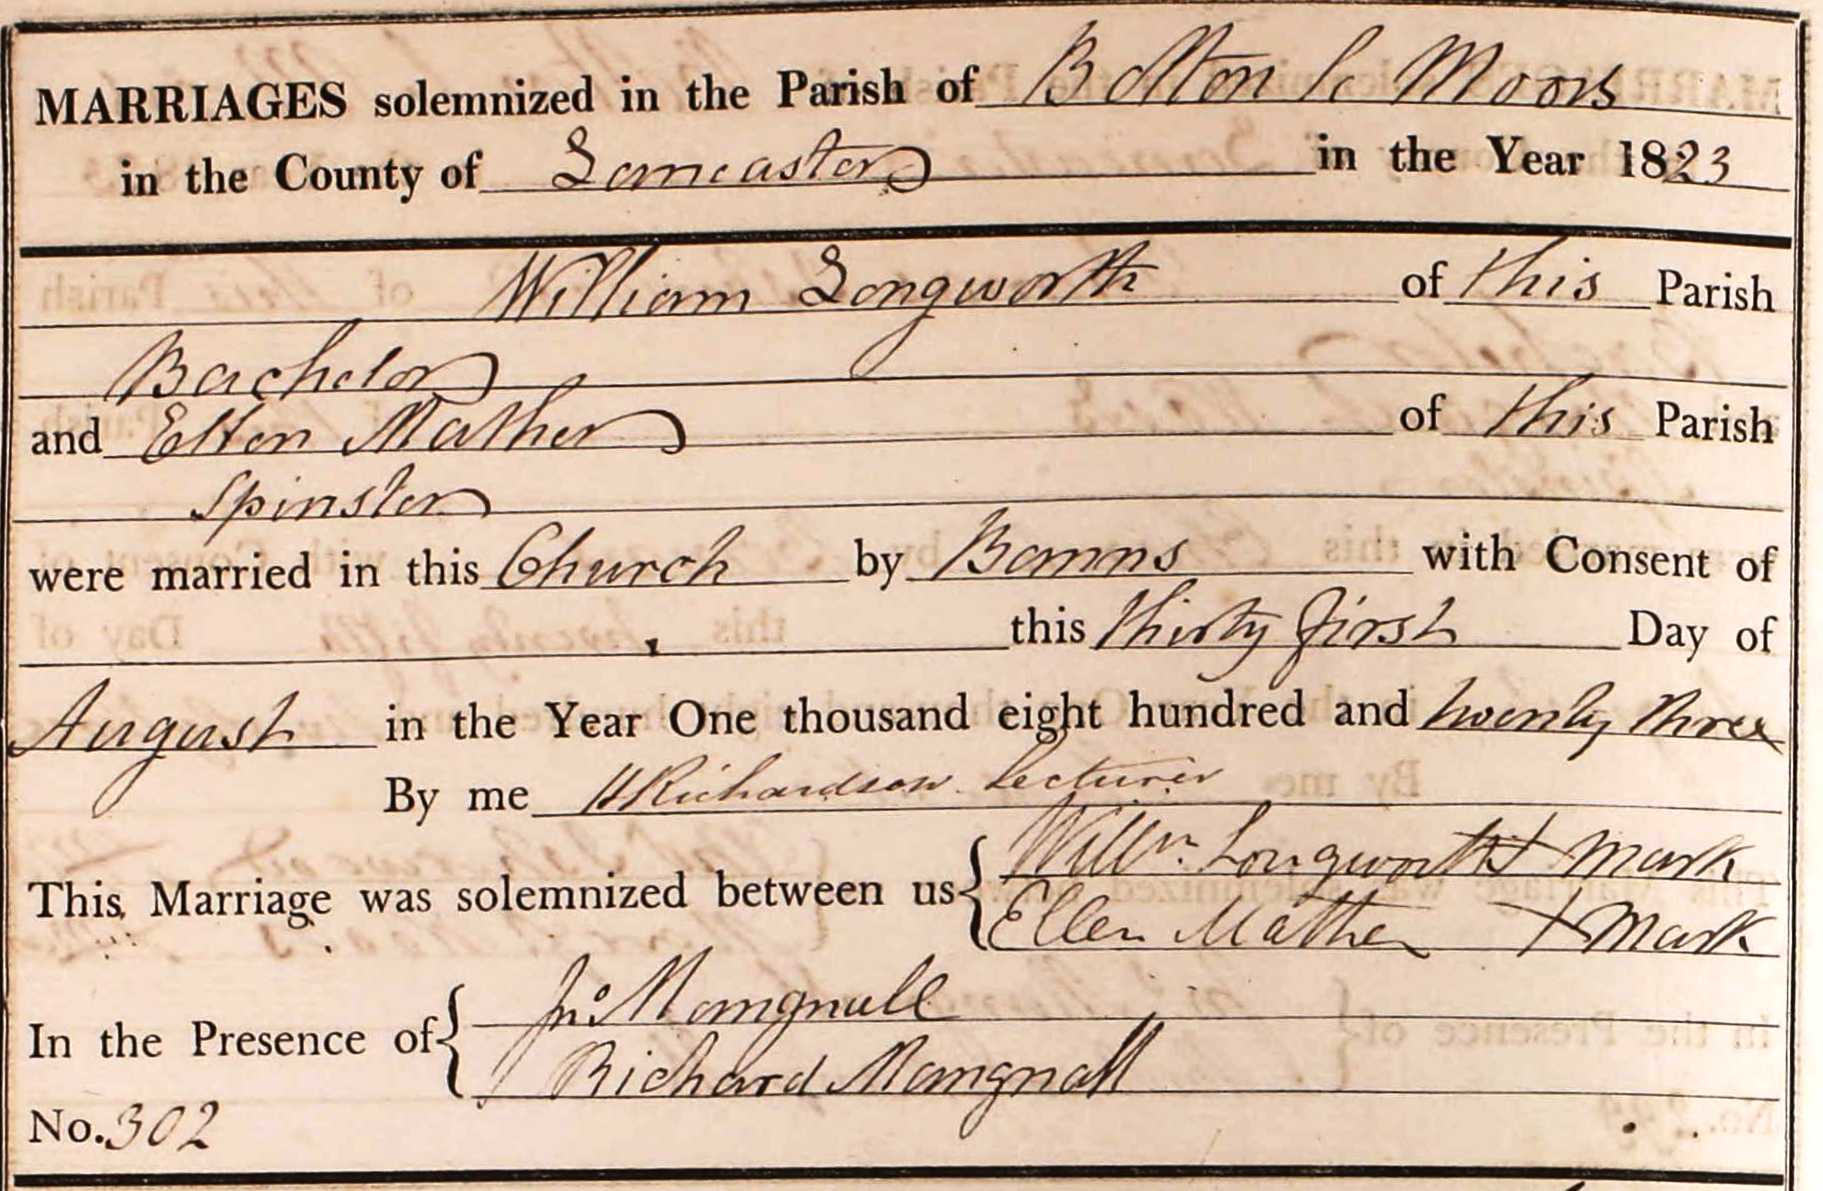 MARRIAGES solemnized in the Parish of Bolton le Moors
in the County of Lancaster in the Year 1823
William Longworth of this Parish
Bachelor
and Ellen Mather of this Parish
Spinster
were married in this Church by Banns with Consent of
this thirty first Day of
August in the Year One thousand eight hundred and twenty three
By me H Richardson Lecturer
This Marriage was solemnized between us { Willm. Longworth X mark
Ellen Mather X mark
In the Presence of { Jno Mangnall
Richard Mangnall
No. 302